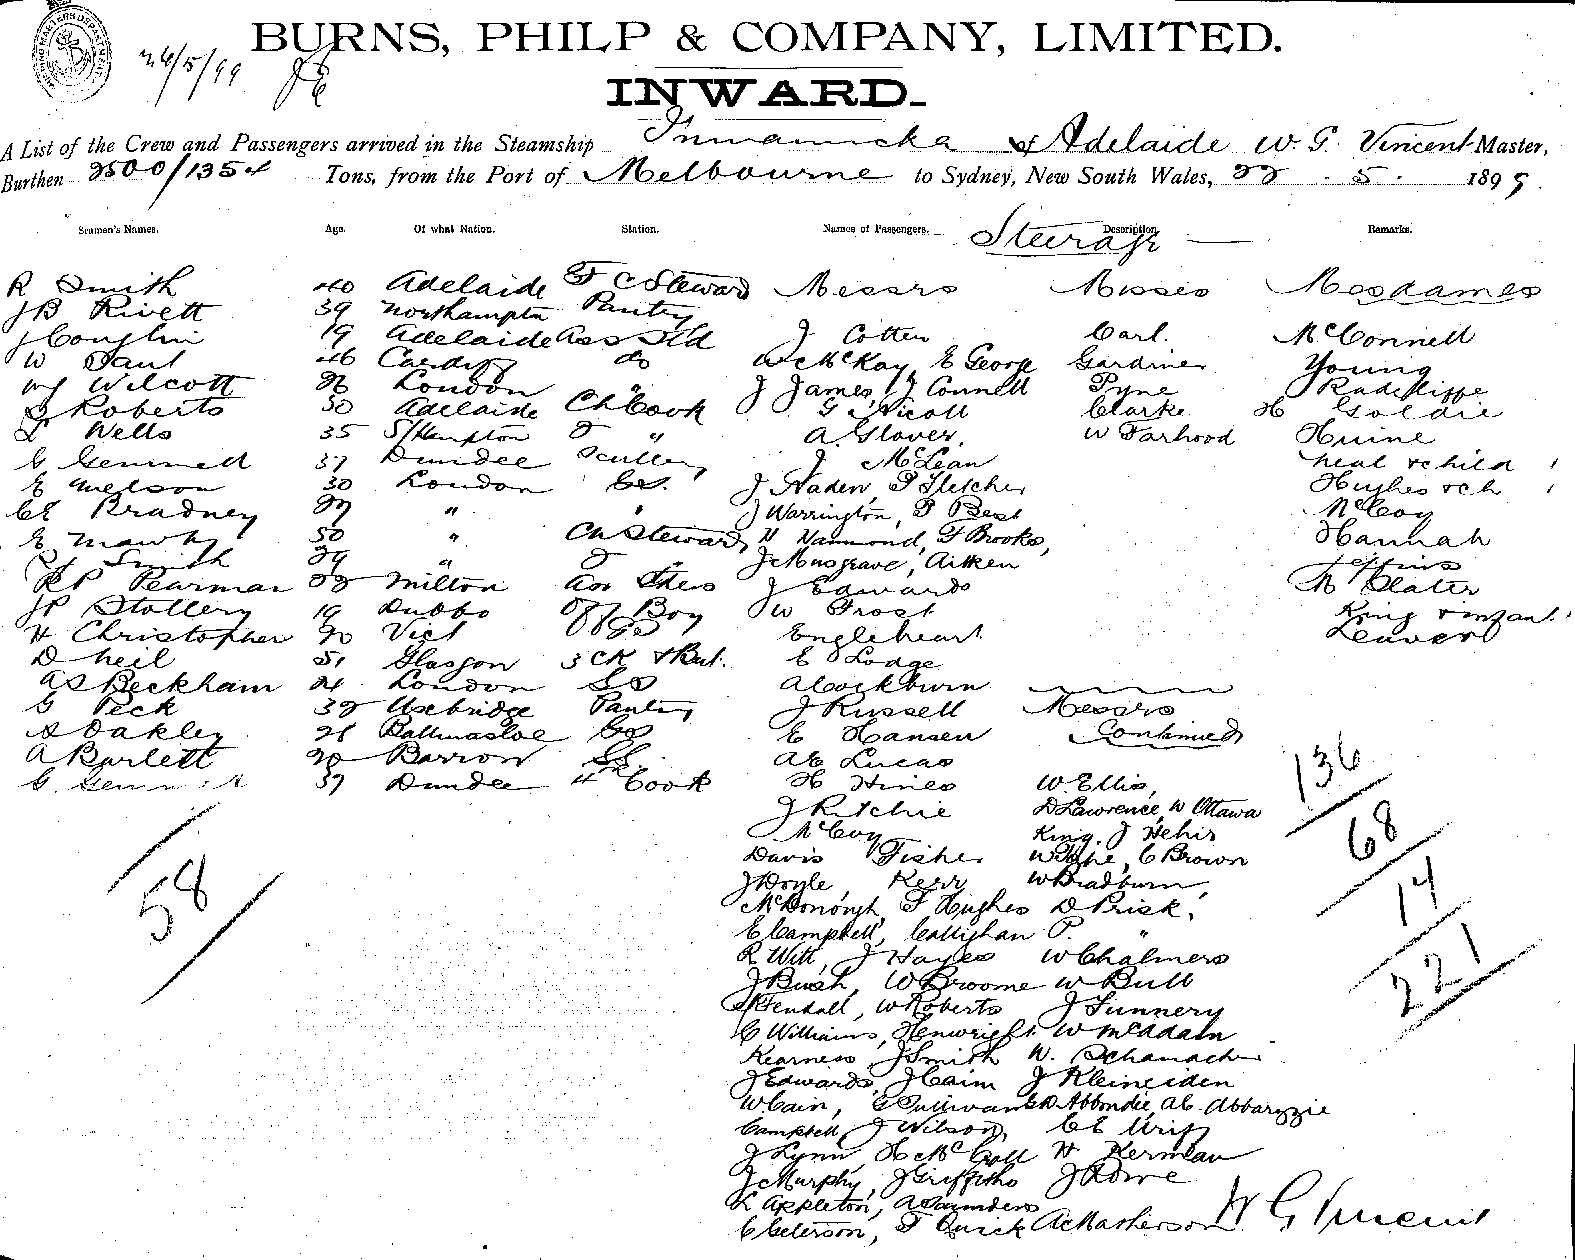 BURNS, PHILP & COMPANY, LIMITED.
26/5/99
INWARD.
A List of the Crew and Passengers arrived in the Steamship Innamincka of Adelaide W. G. Vincent Master,
Burthen 2500/1354 Tons, from the Port of Melbourne to Sydney, New South Wales, 22 . 5 . 1899
Seamen's Names. Age. Of what Nation. Station. Names of Passengers. Steerage Description. Remarks.
R Smith 40 Adelaide F C Steward Messrs Misses Mesdames
J B Rivett 39 Northampton Pantry
J Coughlin 19 Adelaide Ass Std J Cotten Carl. McConnell
W Paul 46 Cardiff do McKay, E George Gardiner Young
Wilcott London J James, J Connell Pyne Radcliffe
Roberts 30 Adelaide Ch Cook G Nicoll Clarke H Goldie
Wells 35 S/Hampton 2 " A. Glover, W Farhood Huine
G Gemmell 37 Dundee Scullery J McLean Neal & child 1
E Melson 30 London J Haden, F Fletcher Hughes & ch 1
CE Bradney " " J Warrington, F Best McCoy
E Mawby 50 " Ch Steward H Hammond, F Brooks, Hannah
Smith 29 " 2 J Musgrave, Aitken Jeffries
RP Pearman Milton Ass J Edwards M Slater
JP Stollery 19 Dubbo Boy W Frost King & infant 1
H Christopher 20 Vict Engleheart Leaver
D Neil 51 Glasgow 3 CK & But. E Lodge
AS Beckham 24 London A Cockburn
G Peck 32 Uxbridge Pantry J Russell Messrs
S Oakley 26 Ballinasloe E Hansen Continued
A Bartlett 20 Barrow A E Lucas
G Gemmell 37 Dundee 4th Cook H Hines W. Ellis,
J Ritchie D Lawrence, W Ottawa
McCoy King, J Hehir
Davis Fisher W Pope, C Brown
J Doyle, Kerr W Bradburn,
McDonough, F Hughes D Prisk,
E Campbell, Callighan P. "
R Witt, J Hayes W Chalmers
J Bush, W Broome W Bull
Kendall, W Roberts J Funnery
C Williams, Henwright W McAdam
Kearness J Smith W.
J Edwards, J Cain J Kleineiden
W Cain, E Sullivan Abbondie, Abbaryzie
Campbell, J Wilson, CE
J Lynn, H McCall H Kerman
J Murphy, J Griffiths J Rowe
R Appleton, A Saunders
C Peterson, F Quick A Matherson W G Vincent
136
68
14
221
58